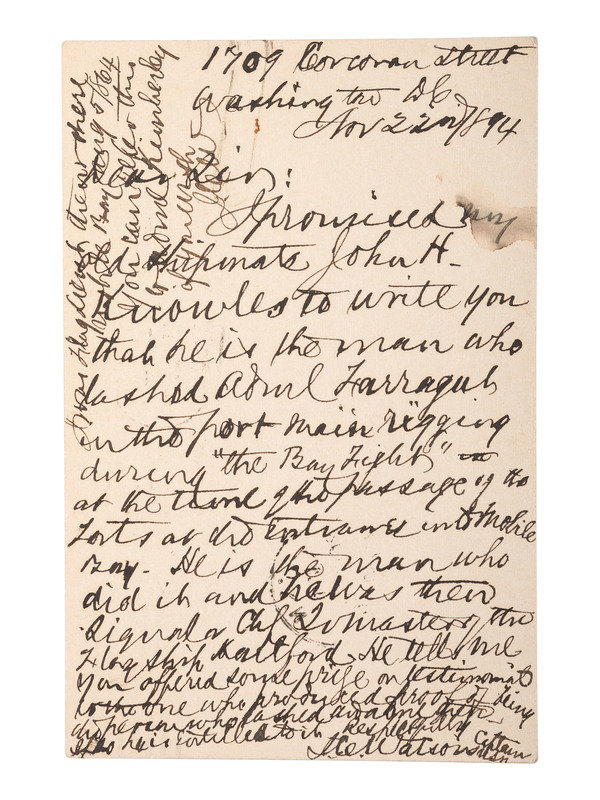 1709 Corcoran Street
Washington D.C.
Nov 22nd/894
Dear Sir:
I promised my
old shipmate John H.
Knowles to write you
that he is the man who
lashed Adml Farragut
in the port main rigging
during "the Bay Fight"
at the time of the passage of the
Forts at the entrance into Mobile
Bay. He is the man who
did it and he was then
Signal or Chf Qr master of the
Flag Ship Hartford. He tells me
you offered some prize or testimonial
to the one who produced proof of being
the person who lashed
he is entitled to it. Respectfully
J.C. Watson Captain
USN
I was Flag Lieut there
Mobile Bay Aug 5/864
You can refer this
to Adml Kimberley